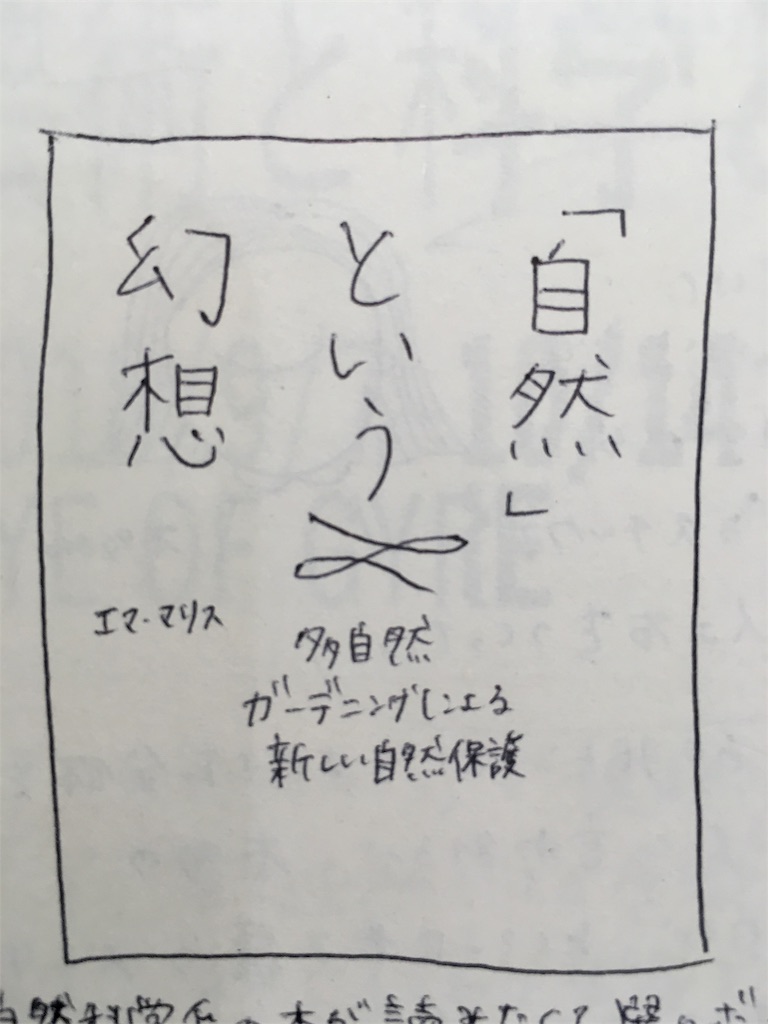 「自然」
という
幻想
エマ・マリス
多自然
ガーデニングによる
新しい自然保護